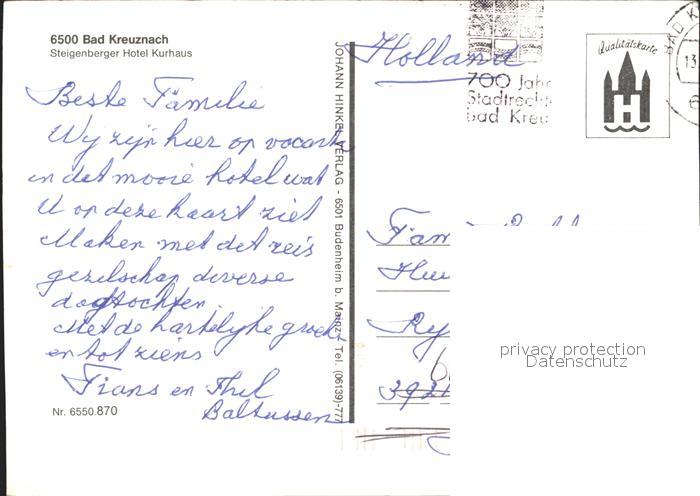 6500 Bad Kreuznach
Steigenberger Hotel Kurhaus
Beste Familie
Wy zijn hier op vacantie
in dat mooie hotel wat
U op deze kaart ziet
Maken met dit reis
gezelschap diverse
dagtochten.
Met de hartelijke groeten
en tot ziens
Frans en Thil
Baltussen
Nr. 6550.870
JOHANN HINKEL VERLAG - 6501 Budenheim b. Mainz - Tel. (06139)-777
Holland
700 Jahr
Stadtrecht
Bad Kreu
BAD K
13.
Qualitätskarte
H
Fam
Ry
privacy protection
Datenschutz